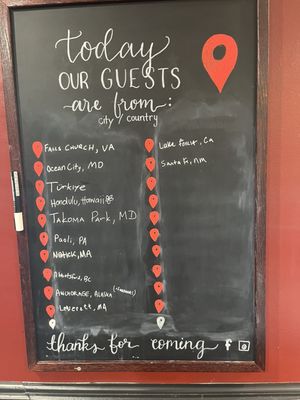 today
OUR GUESTS
are from:
city / country
Falls Church, VA
Ocean City, MD
Türkiye
Honolulu, Hawaii
Takoma Park, MD
Paoli, PA
Natick, MA
Abbotsford, BC
Anchorage, Alaska
Leverett, MA
Lake Forest, Ca
Santa Fe, nm
thanks for coming